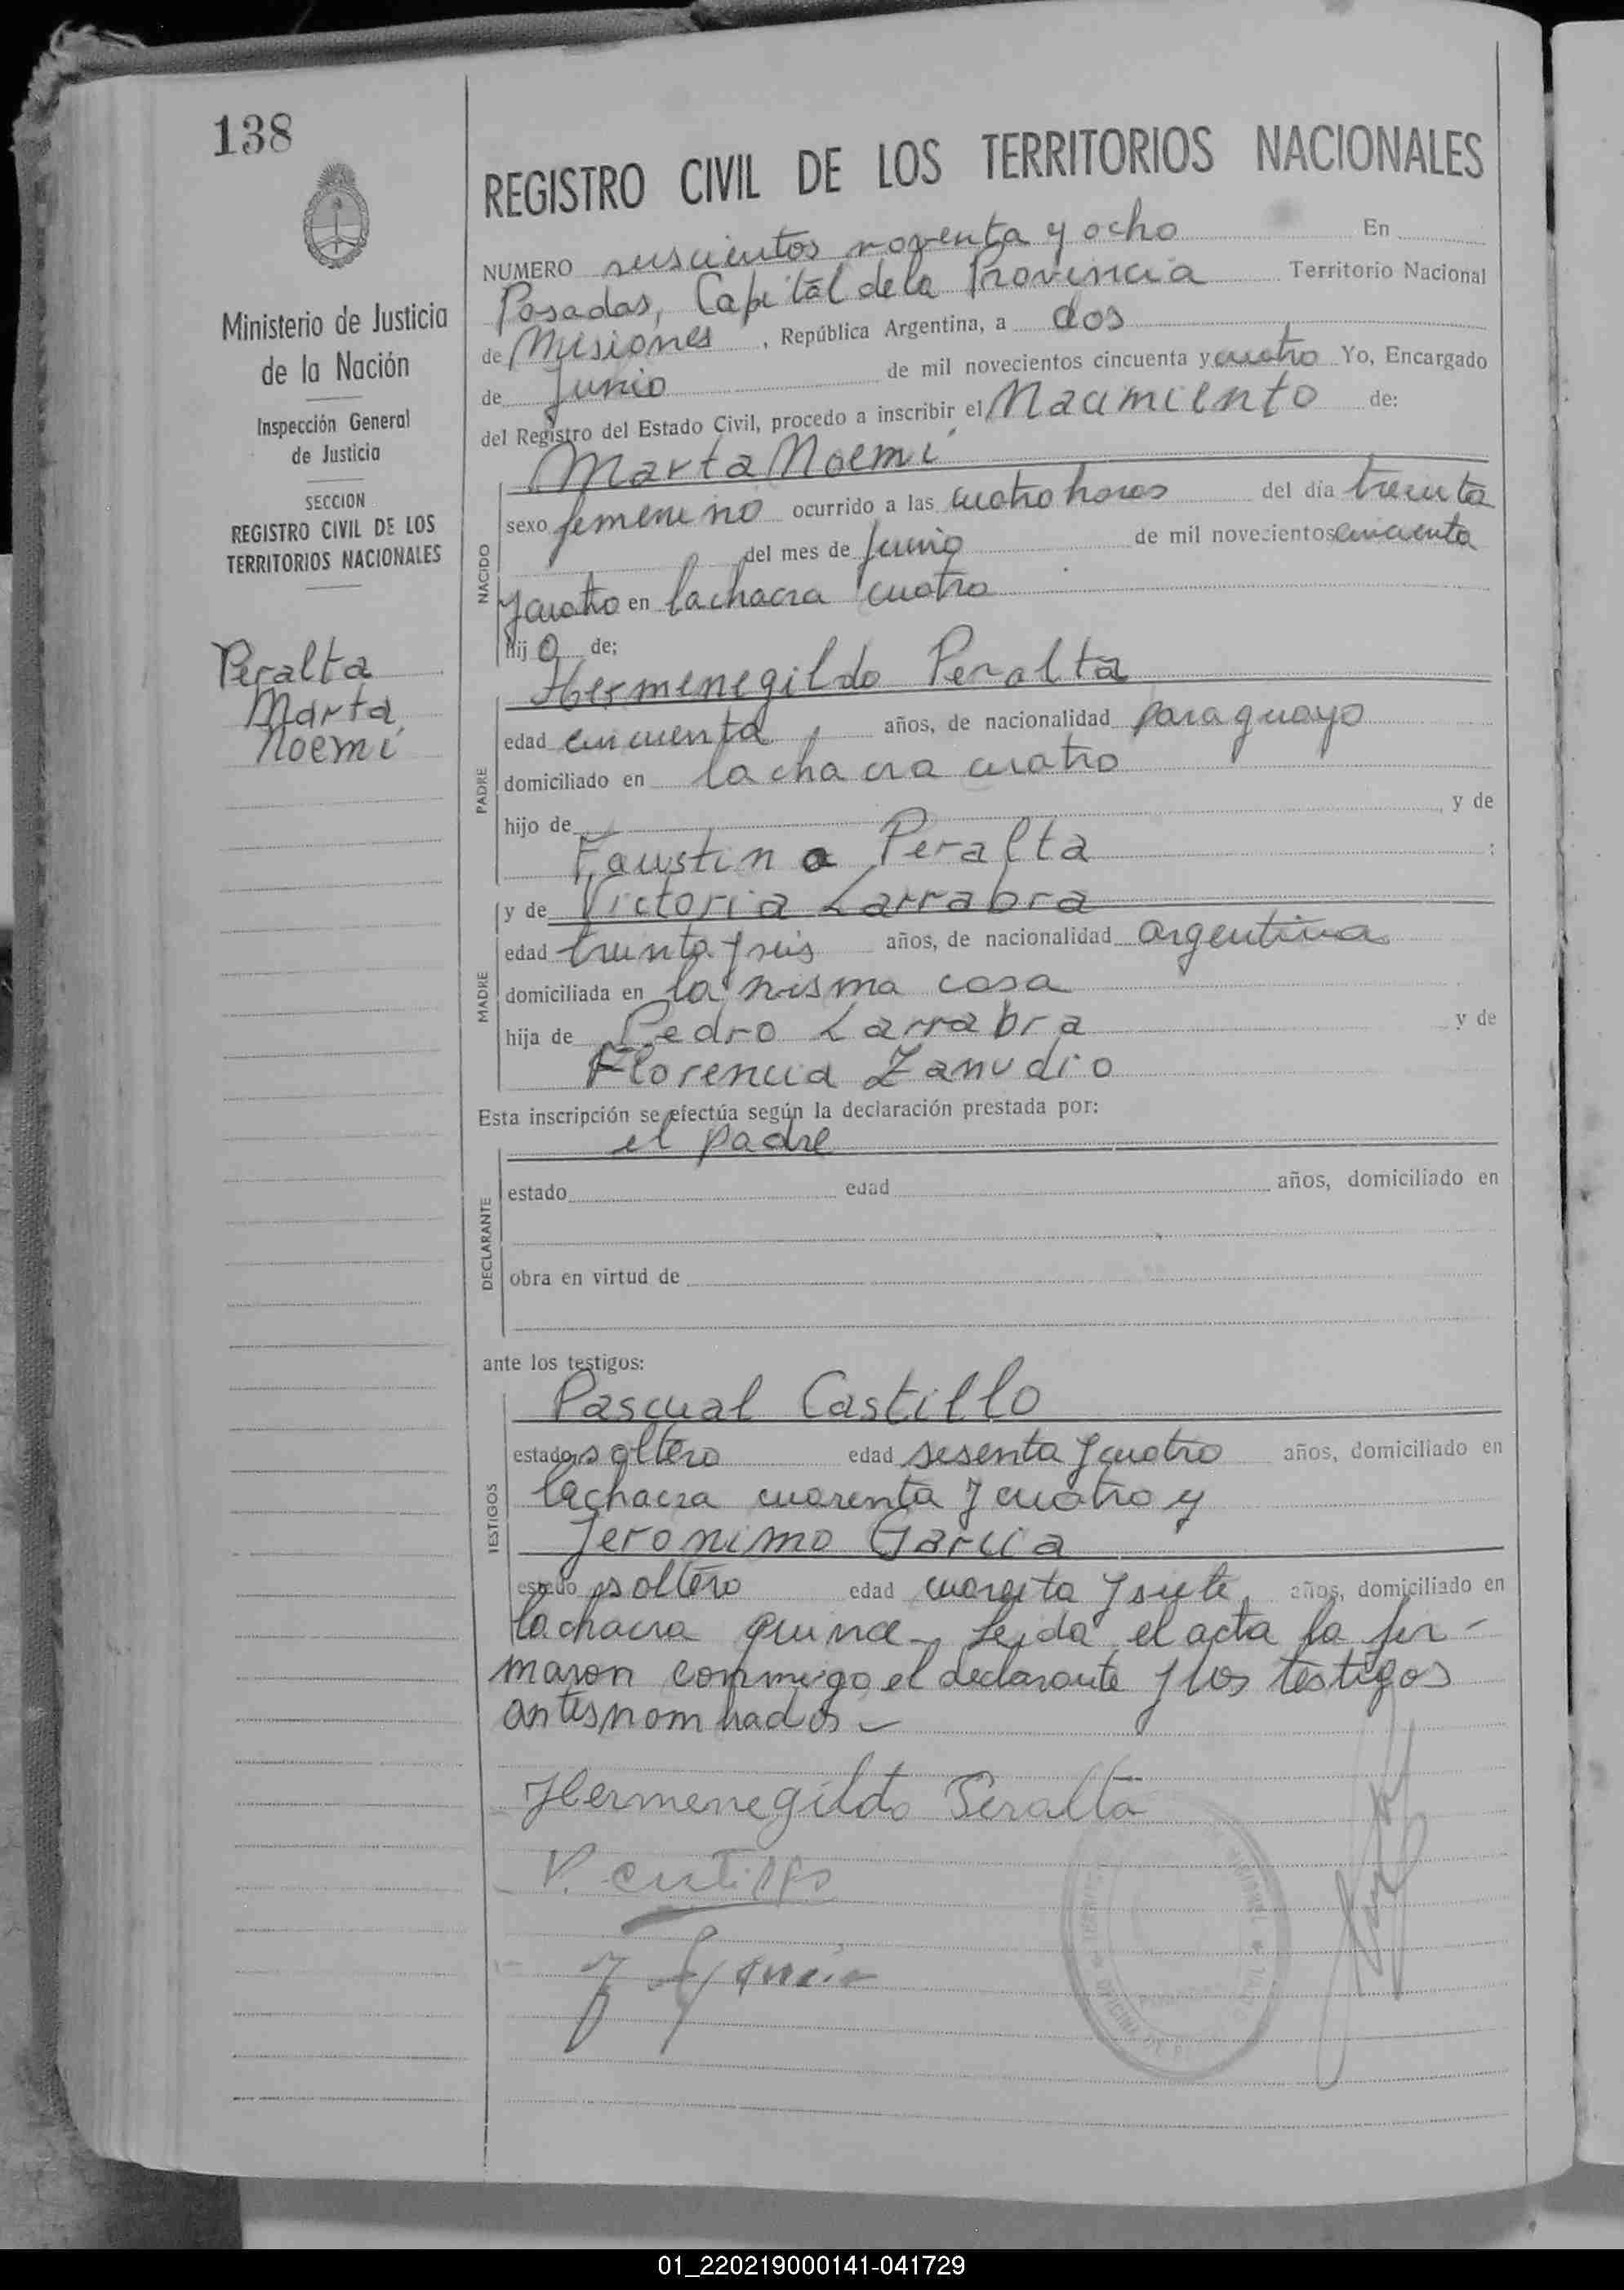 138
Ministerio de Justicia
de la Nación
Inspección General
de Justicia
SECCION
REGISTRO CIVIL DE LOS
TERRITORIOS NACIONALES
Peralta
Marta
Noemí
REGISTRO CIVIL DE LOS TERRITORIOS NACIONALES
NUMERO seiscientos noventa y ocho En
Posadas, Capital de la Provincia Territorio Nacional
de Misiones, República Argentina, a dos
de Junio de mil novecientos cincuenta y cuatro Yo, Encargado
del Registro del Estado Civil, procedo a inscribir el Nacimiento de:
Marta Noemí
NACIDO
sexo femenino ocurrido a las cuatro horas del día treinta
del mes de Junio de mil novecientos cincuenta
y cuatro en la chacra cuatro
hij o de;
Hermenegildo Peralta
PADRE
edad cincuenta años, de nacionalidad paraguayo
domiciliado en la chacra cuatro
hijo de , y de
Faustino Peralta ;
y de Victoria Larrabra
MADRE
edad treinta y seis años, de nacionalidad argentina
domiciliada en la misma casa
hija de Pedro Larrabra y de
Florencia Zanudio
Esta inscripción se efectúa según la declaración prestada por:
el padre
DECLARANTE
estado edad años, domiciliado en
obra en virtud de
ante los testigos:
Pascual Castillo
TESTIGOS
estado soltero edad sesenta y cuatro años, domiciliado en
la chacra cuarenta y cuatro y
Jeronimo Garcia
estado soltero edad cuarenta y siete años, domiciliado en
la chacra quince - Leida el acta la fir-
maron conmigo el declarante y los testigos
antes nombrados -
Hermenegildo Peralta
OFICINA DE
01_220219000141-041729